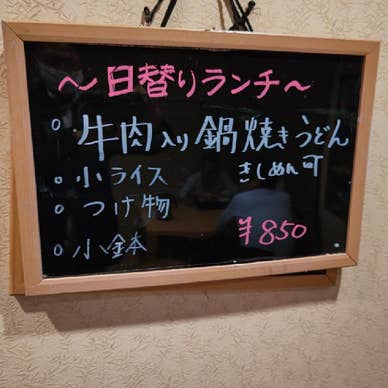 ～日替りランチ～
○ 牛肉入り鍋焼きうどん
きしめん可
○ 小ライス
○ つけ物
○ 小鉢
¥850